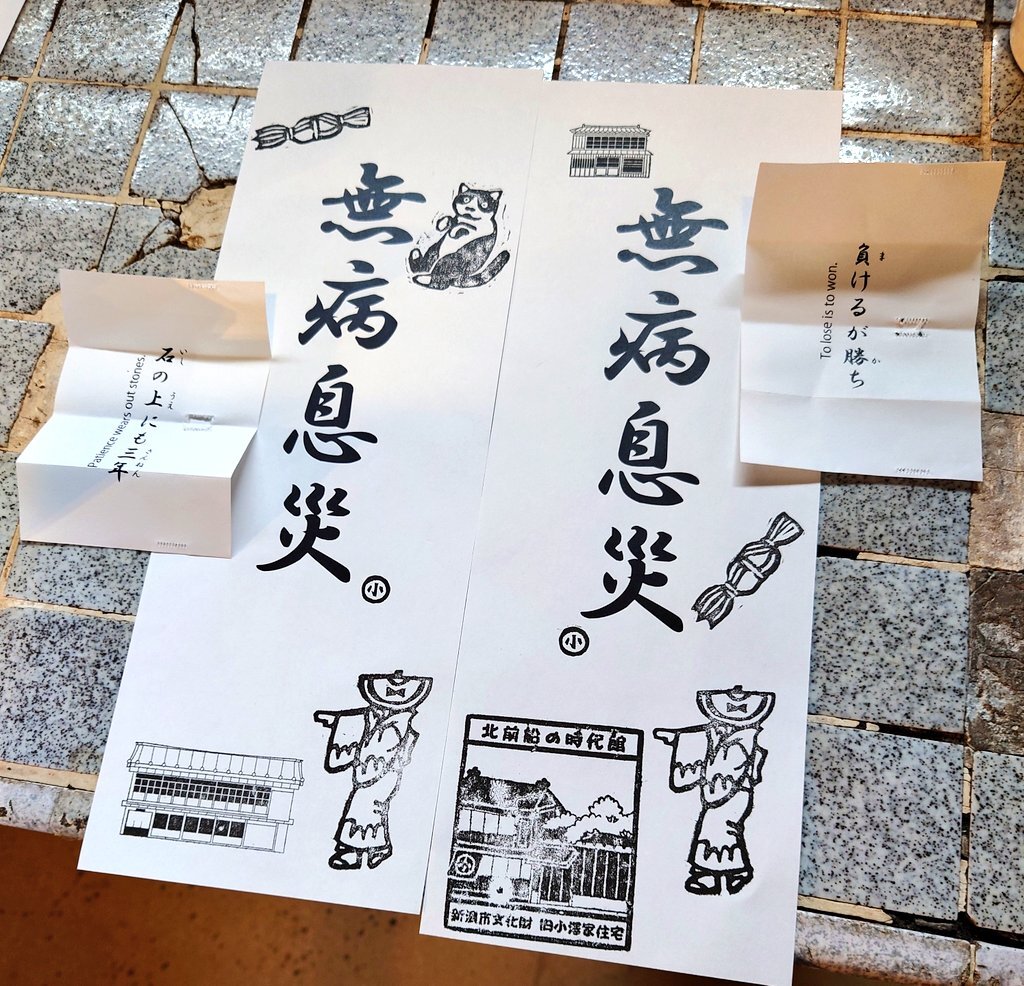 無病息災
小
無病息災
小
石の上にも三年
いし
うえ
さんねん
Patience wears out stones.
負けるが勝ち
ま
か
To lose is to won.
北前船の時代館
新潟市文化財 旧小澤家住宅